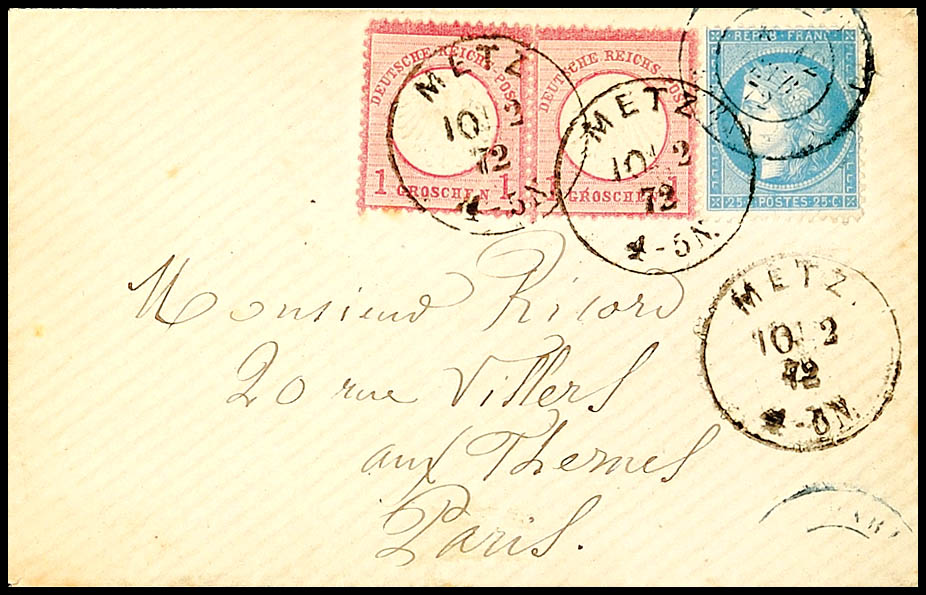 DEUTSCHE REICHS-POST
1 GROSCHEN 1
DEUTSCHE REICHS-POST
1 GROSCHEN 1
REPUB. FRANC.
25 C POSTES 25 C
METZ
10 2
72
4 - 5 N.
METZ
10 2
72
4 - 5 N.
METZ.
10 2
72
- 5 N.
Monsieur Ricord
20 rue Villers
aux Thernes
Paris.